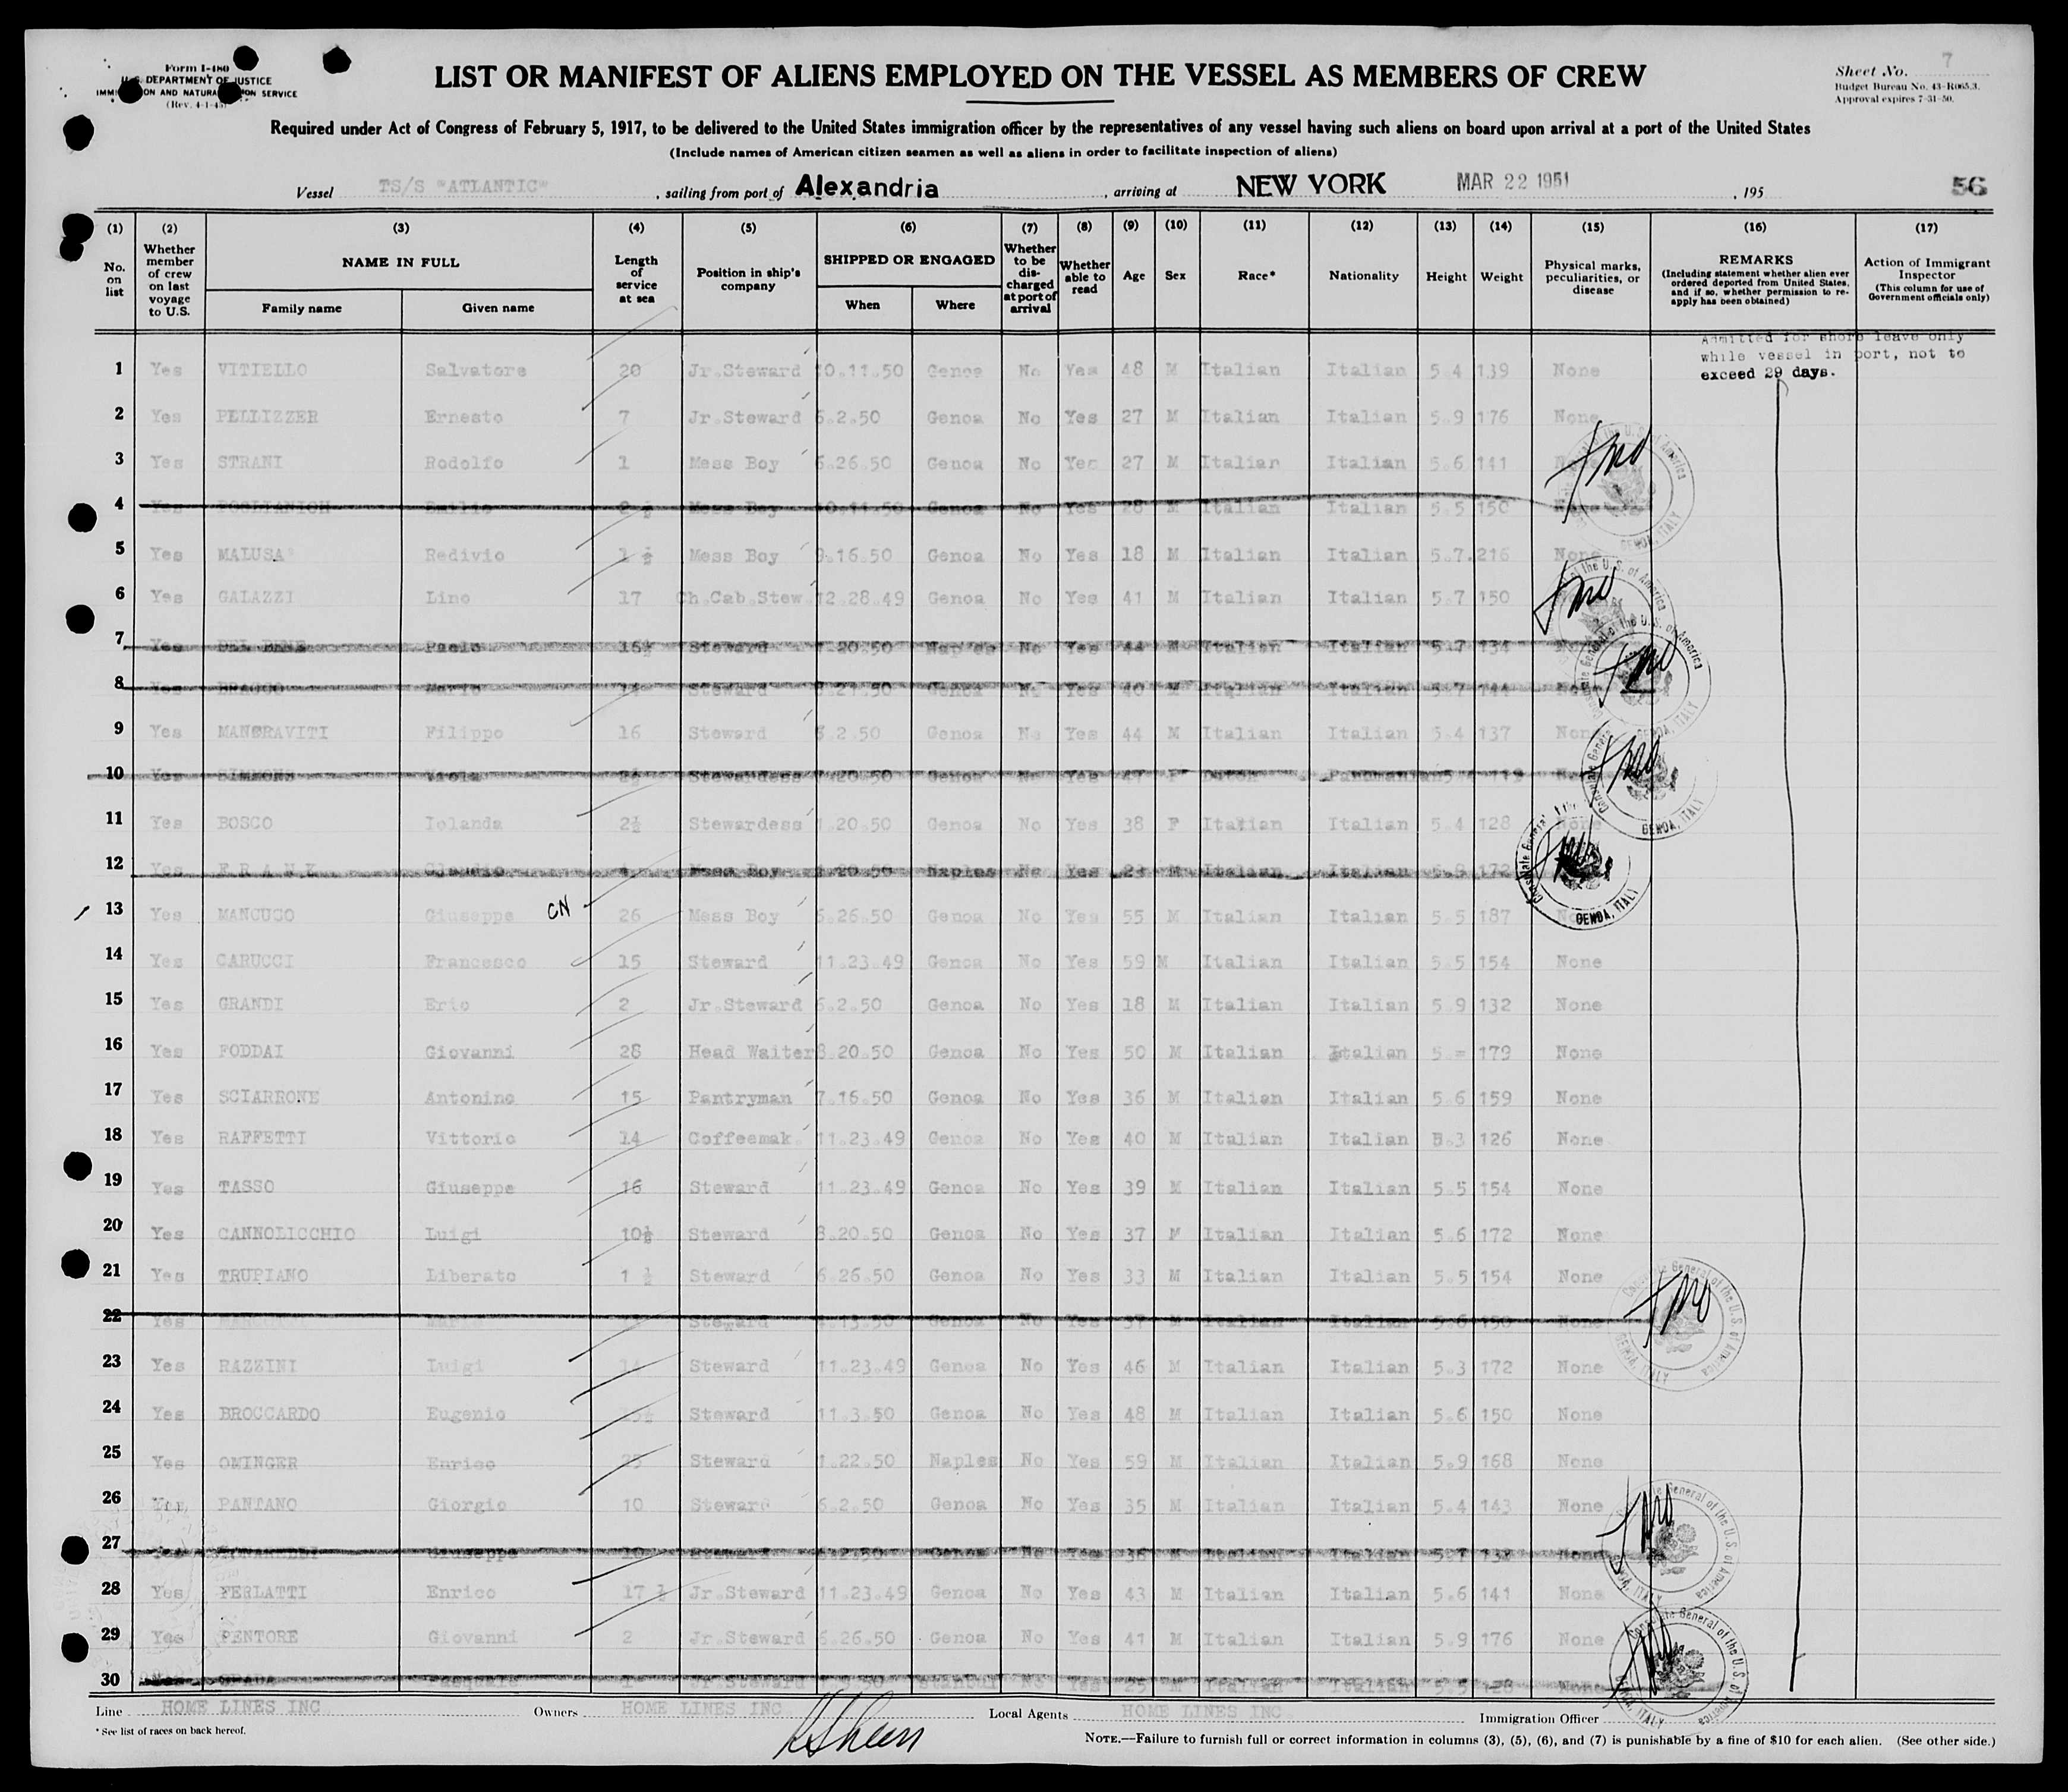 Form I-480
U. S. DEPARTMENT OF JUSTICE
IMMIGRATION AND NATURALIZATION SERVICE
(Rev. 4-1-45)
LIST OR MANIFEST OF ALIENS EMPLOYED ON THE VESSEL AS MEMBERS OF CREW
Sheet No. 7
Budget Bureau No. 43-R065.3.
Approval expires 7-31-50.
Required under Act of Congress of February 5, 1917, to be delivered to the United States immigration officer by the representatives of any vessel having such aliens on board upon arrival at a port of the United States
(Include names of American citizen seamen as well as aliens in order to facilitate inspection of aliens)
Vessel TS/S "ATLANTIC", sailing from port of Alexandria, arriving at NEW YORK MAR 22 1951, 195
56
(1) (2) (3) (4) (5) (6) (7) (8) (9) (10) (11) (12) (13) (14) (15) (16) (17)
No. on list
Whether member of crew on last voyage to U.S.
NAME IN FULL
Family name Given name
Length of service at sea
Position in ship's company
SHIPPED OR ENGAGED
When Where
Whether to be discharged at port of arrival
Whether able to read
Age Sex Race* Nationality Height Weight
Physical marks, peculiarities, or disease
REMARKS
(Including statement whether alien ever ordered deported from United States, and if so, whether permission to reapply has been obtained)
Action of Immigrant Inspector
(This column for use of Government officials only)
Admitted for shore leave only
while vessel in port, not to
exceed 29 days.
1 Yes VITIELLO Salvatore 20 Jr.Steward 10.11.50 Genoa No Yes 48 M Italian Italian 5.4 139 None
2 Yes PELLIZZER Ernesto 7 Jr.Steward 6.2.50 Genoa No Yes 27 M Italian Italian 5.9 176 None
3 Yes STRANI Rodolfo 1 Mess Boy 6.26.50 Genoa No Yes 27 M Italian Italian 5.6 141 None
4 Yes Emilio Mess Boy 10.11.50 Genoa No Yes 28 M Italian Italian 5.5 150 None
5 Yes MALUSA Redivio 1 ½ Mess Boy 9.16.50 Genoa No Yes 18 M Italian Italian 5.7. 216 None
6 Yes GALAZZI Lino 17 Ch.Cab.Stew. 12.28.49 Genoa No Yes 41 M Italian Italian 5.7 150
7 Yes DEL BENE Paolo 16½ Steward 1.20.50 No Yes 44 M Italian Italian 5.7 134
8 Yes Mario 14 Steward Genoa No Yes 40 M Italian Italian 5.7 144
9 Yes MANGRAVITI Filippo 16 Steward 6.2.50 Genoa No Yes 44 M Italian Italian 5.4 137 None
10 Yes SIMMONS Viola Stewardess 1.20.50 Genoa No Yes 47 F
11 Yes BOSCO Iolanda 2½ Stewardess 1.20.50 Genoa No Yes 38 F Italian Italian 5.4 128 None
12 Yes F R A N K Claudio Mess Boy 1.20.50 Naples No Yes 23 M Italian Italian 172
13 Yes MANCUSO Giuseppe CN 26 Mess Boy 6.26.50 Genoa No Yes 55 M Italian Italian 5.5 187
14 Yes CARUCCI Francesco 15 Steward 11.23.49 Genoa No Yes 59 M Italian Italian 5.5 154 None
15 Yes GRANDI Eric 2 Jr.Steward 6.2.50 Genoa No Yes 18 M Italian Italian 5.9 132 None
16 Yes FODDAI Giovanni 28 Head Waiter 8.20.50 Genoa No Yes 50 M Italian Italian 5.= 179 None
17 Yes SCIARRONE Antonino 15 Pantryman 7.16.50 Genoa No Yes 36 M Italian Italian 5.6 159 None
18 Yes RAFFETTI Vittorio 14 Coffeemak. 11.23.49 Genoa No Yes 40 M Italian Italian 5.3 126 None
19 Yes TASSO Giuseppe 16 Steward 11.23.49 Genoa No Yes 39 M Italian Italian 5.5 154 None
20 Yes CANNOLICCHIO Luigi 10½ Steward 8.20.50 Genoa No Yes 37 M Italian Italian 5.6 172 None
21 Yes TRUPIANO Liberato 1 ½ Steward 6.26.50 Genoa No Yes 33 M Italian Italian 5.5 154 None
22 Yes Steward No Yes 37 M Italian Italian 5.6 150 None
23 Yes RAZZINI Luigi 14 Steward 11.23.49 Genoa No Yes 46 M Italian Italian 5.3 172 None
24 Yes BROCCARDO Eugenio Steward 11.3.50 Genoa No Yes 48 M Italian Italian 5.6 150 None
25 Yes OMINGER Enrico Steward 1.22.50 Naples No Yes 59 M Italian Italian 5.9 168 None
26 Yes PANTANO Giorgio 10 Steward 6.2.50 Genoa No Yes 35 M Italian Italian 5.4 143 None
27 Yes Giuseppe Steward 6.2.50 Genoa No Yes Italian Italian 5.7 None
28 Yes FERLATTI Enrico 17 ½ Jr.Steward 11.23.49 Genoa No Yes 43 M Italian Italian 5.6 141 None
29 Yes PENTORE Giovanni 2 Jr.Steward 6.26.50 Genoa No Yes 41 M Italian Italian 5.9 176 None
30 Jr.Steward No Yes 25 M Italian Italian 5.5 128 None
Consulate General of the U.S. of America
GENOA, ITALY
Line HOME LINES INC Owners HOME LINES INC Local Agents HOME LINES INC. Immigration Officer
* See list of races on back hereof.
NOTE.—Failure to furnish full or correct information in columns (3), (5), (6), and (7) is punishable by a fine of $10 for each alien. (See other side.)